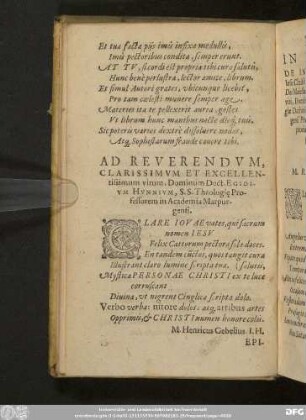 Et tua facta piis imis infixa medullis,
Imis pectoribus condita, semper erunt.
AT TV, si cordi est propria tibi cura salutis,
Hunc bene perlustra, lector amice, librum.
Et simul Autori grates, ubicunque licebit
Pro tam cœlesti munere semper age.
Materies ita te pellexerit aurea, gestet
Ut librum hunc manibus nocte dieq; tuis.
Sic poteris varios dextrè dissolvere nodos,
Atq; Sophistarum fraude cavere tibi.
AD REVERENDVM,
CLARISSIMVM ET EXCELLEN-
tissimum virum, Dominum Doct. EGIDI-
VM HVNNIVM, S.S. Theologiæ Pro-
fessorem in Academia Marpur-
gensi.
CLARE IOVAE vates, qui sacrum
nomen IESV
Felix Cattorum pectora fido doces.
En tandem cunctos, quos tangit cura
Illustrant claro lumine scripta tua. salutis,
Mystica PERSONAE CHRISTI ex te luce
corruscant
Divina, ut nigrent Cinglica scripta dolo.
Verbo verba: nitore dolos: atq; artibus artes
Opprimis, & CHRISTI numen honore colis.
M. Henricus Gebelius I.H.
EPI-